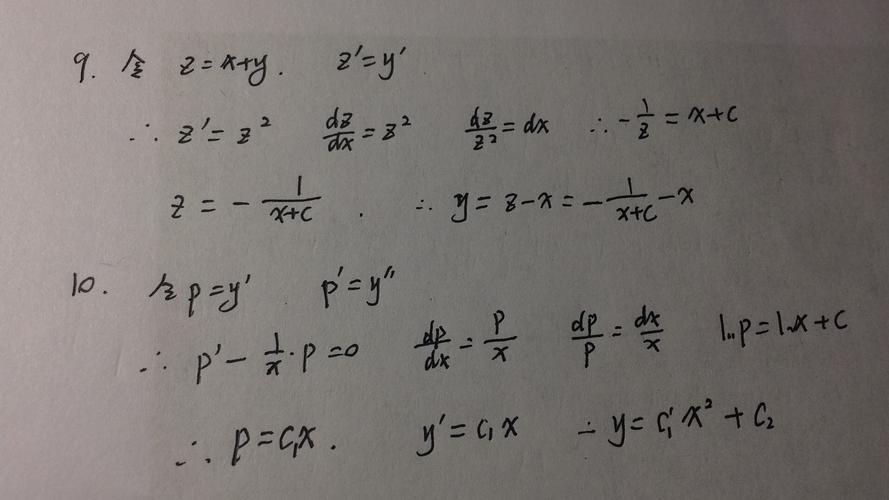 9. 令 z = x+y. z' = y'
∴ z' = z² dz/dx = z² dz/z² = dx ∴ -1/z = x+c
z = - 1/(x+c) . ∴ y = z-x = - 1/(x+c) - x
10. 令 p = y' p' = y''
∴ p' - 1/x · p = 0 dp/dx = p/x dp/p = dx/x ln p = ln x + c
∴ p = c₁x . y' = c₁ x ∴ y = c₁' x² + c₂